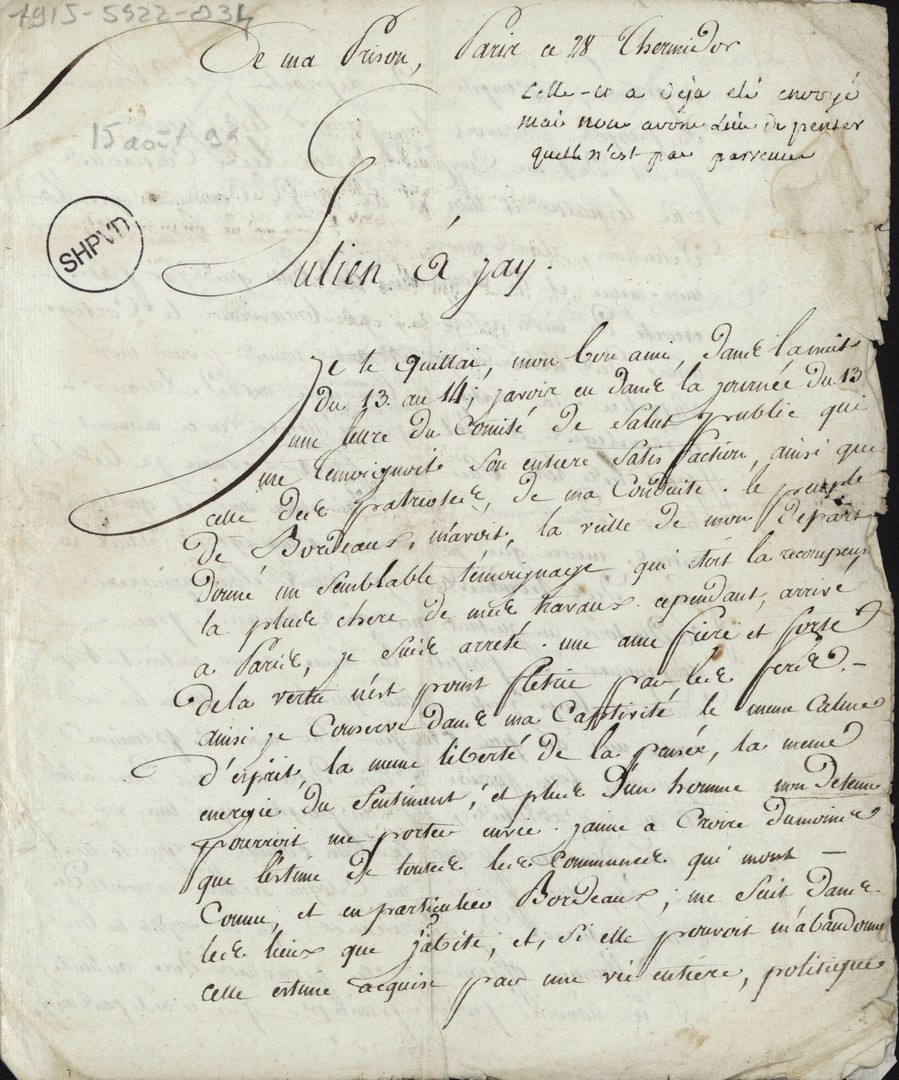 1915-5922-034
De ma Prison, Paris ce 28 Thermidor
Celle-ci a déja été envoyé
mais nous avons lieu de penser
quelle n'est pas parvenue
15 août 94
SHPVD
Julien à jay.
je te quittai, mon bon ami, dans la nuit
du 13. au 14; javois eu dans la journée du 13
une lettre du Comité de Salut public qui
me temoignoit son entiere satisfaction, ainsi que
celle des patriotes, de ma Conduite. le peuple
de Bordeaux, m'avoit, la veille de mon Départ
donné un semblable témoignage qui étoit la recompense
la plus chere de mes travaux. cependant, arrivé
a Paris, je suis arreté. une ame fiere et forte
de la vertu n'est point flétrie par les fers. -
ainsi je Conserve dans ma Captivité le meme Calme
d'esprit, la meme liberté de la pensée, la meme
energie du sentiment; et plus d'un homme non Detenu
pourroit me porter envie. jaime a Croire dumoins
que l'estime de toutes les Communes qui mont -
Connu, et en particulier Bordeaux; me suit dans
les lieux que j'abite; et, si elle pouvoit m'abandonner
cette estime acquise par une vie entiére, politique